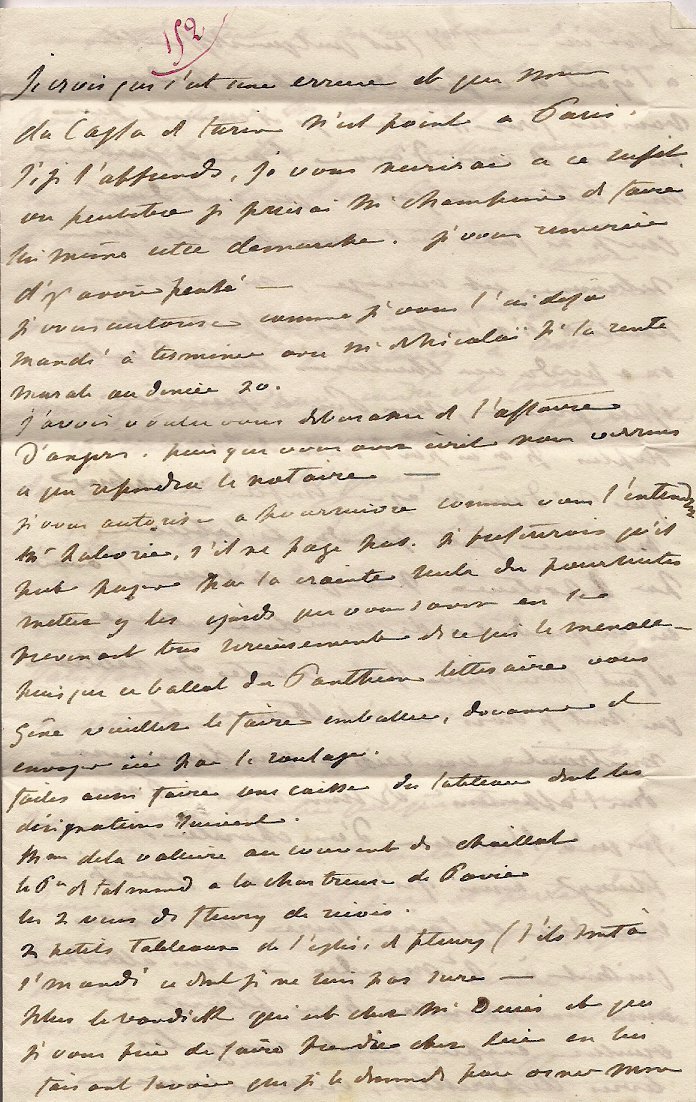 152
Je crois que c'est une erreur et que Mme
du Cayla et turin n'est point a Paris.
Si je l'apprends, je vous ecrirai a ce sujet
ou peutetre je prierai Mr de faire
lui même cette demarche. je vous remercie
d'y avoir pensé —
je vous autorise comme je vous l'ai deja
mandé à terminer avec Mr de Nicolaï si la rente
au denier 20.
j'avois voulu vous debarasser de l'affaire
D'angers. puisque vous avez écrit nous verrons
ce que repondra le notaire —
je vous autorise a poursuivre comme vous l'entendez
Mr , s'il ne paye pas. je prefererois qu'il
put payer par la crainte seule des poursuites
mettez y les égards que vous savez en le
prevenant tres serieusement de ce qui le menace —
puisque ce ballot du Pantheon litteraire vous
gêne veuillez le faire emballer, et
envoyer ici par le roulage.
faites aussi faire une caisse des tableaux dont les
désignations suivent.
Mme de la valliere au couvent de chaillot
le Pce de talmond a la chartreuse de Pavie
les 2 vues de fleury de
2 petits tableaux de l'eglise de fleury (s'ils sont à
St mandé ce dont je ne suis pas sure —
plus le vandick qui est chez Mr et que
je vous prie de faire prendre chez lui en lui
faisant savoir que je le demande pour orner mon